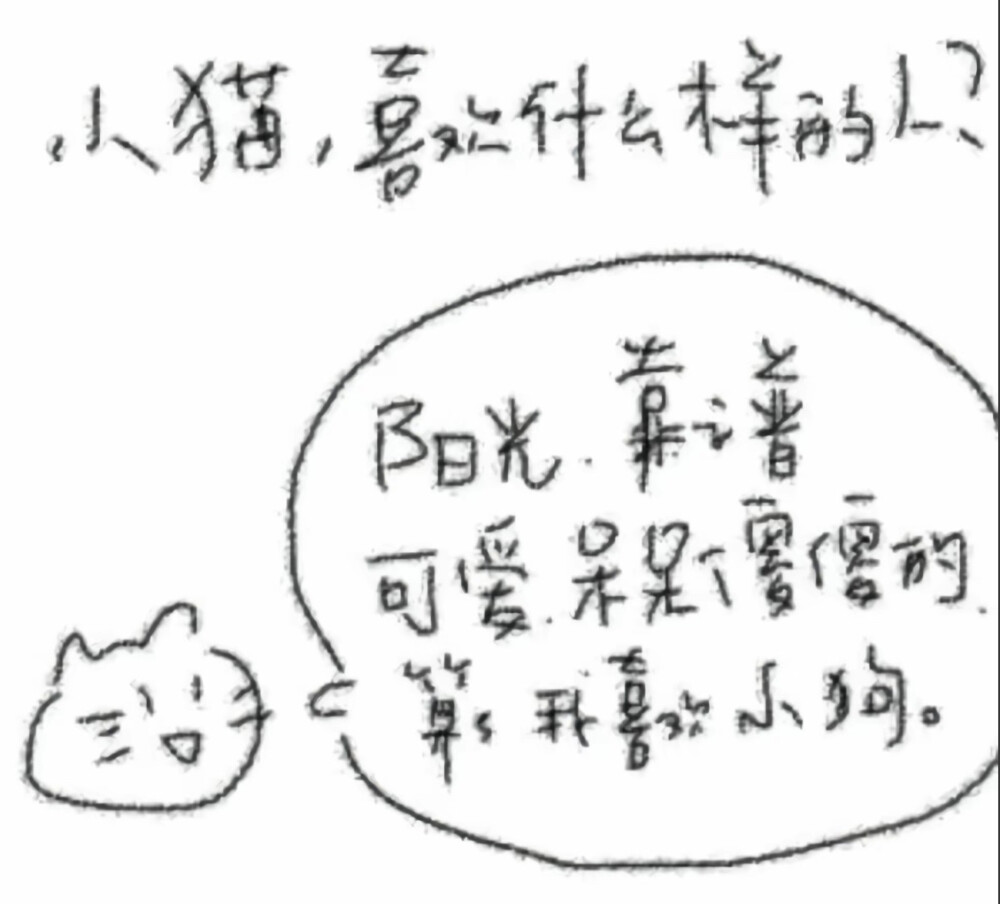 小猫,喜欢什么样的人?
阳光.靠谱
可爱.呆呆傻傻的.
算了我喜欢小狗。